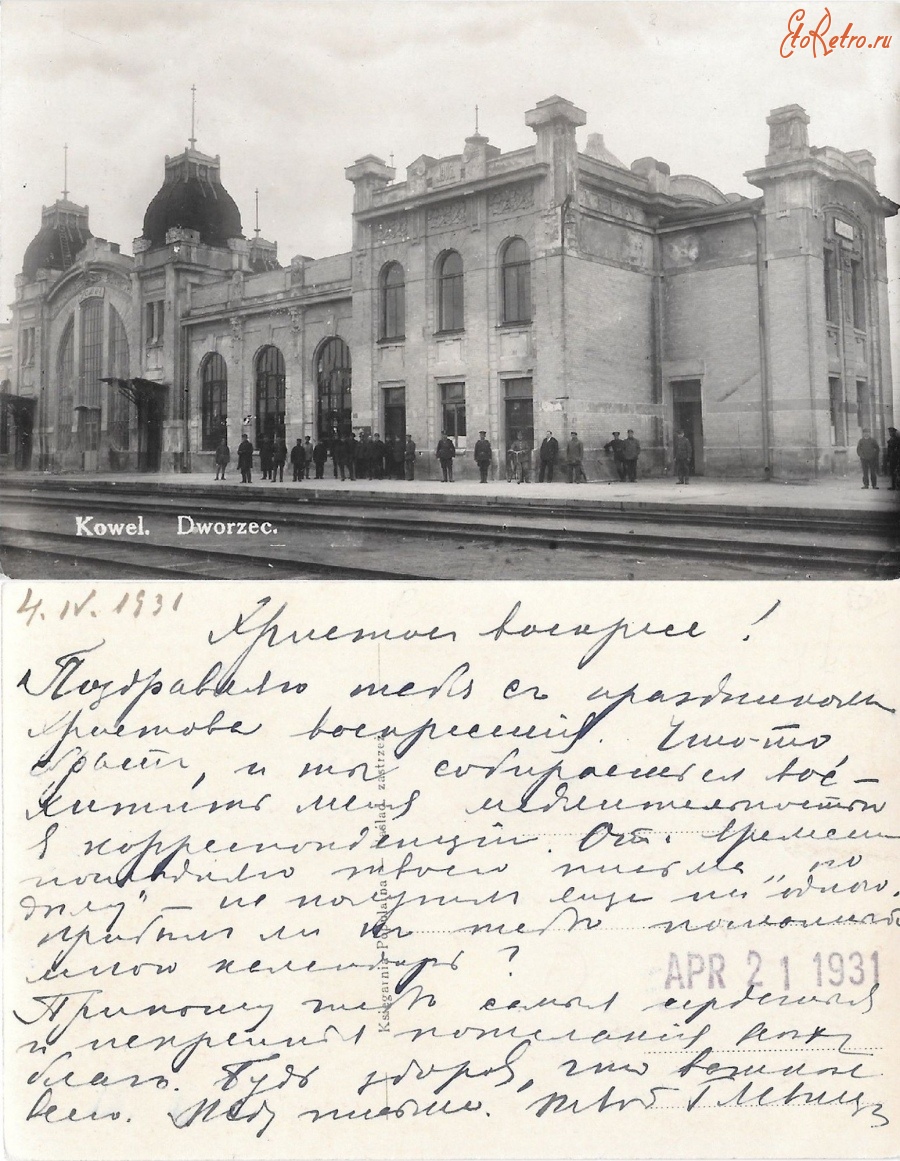 EtoRetro.ru
Kowel. Dworzec.
4. IV. 1931
Христос воскресе!
Поздравляю тебя съ праздником
Христова воскресенія. Что-то
братъ, и ты собираешься вос-
хитить меня медлительностью
в корреспонденціи. От. времени
последняго твоего письма "по
делу" - не получил еще ни одного.
Прибыл ли к тебе посланный
мною календарь?
APR 21 1931
Приношу тебе самыя сердечныя
и искреннія пожеланія всех
благ. Будь здоров, что важней
всего. Жду письма. Твой
Księgarnia Popularna naślad. zastrzeż.